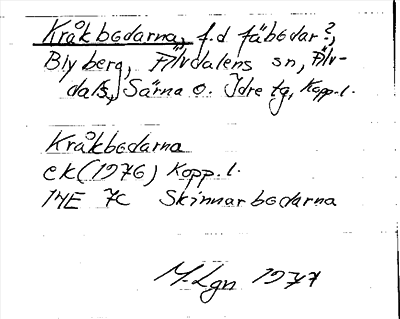 Kråkbodarna, f.d fäbodar?,
Blyberg, Älvdalens sn, Älv-
dals, Särna o. Idre tg, Kopp.l.
Kråkbodarna
ek (1976) Kopp.l.
14E 7c Skinnarbodarna
M.Lgn 1977